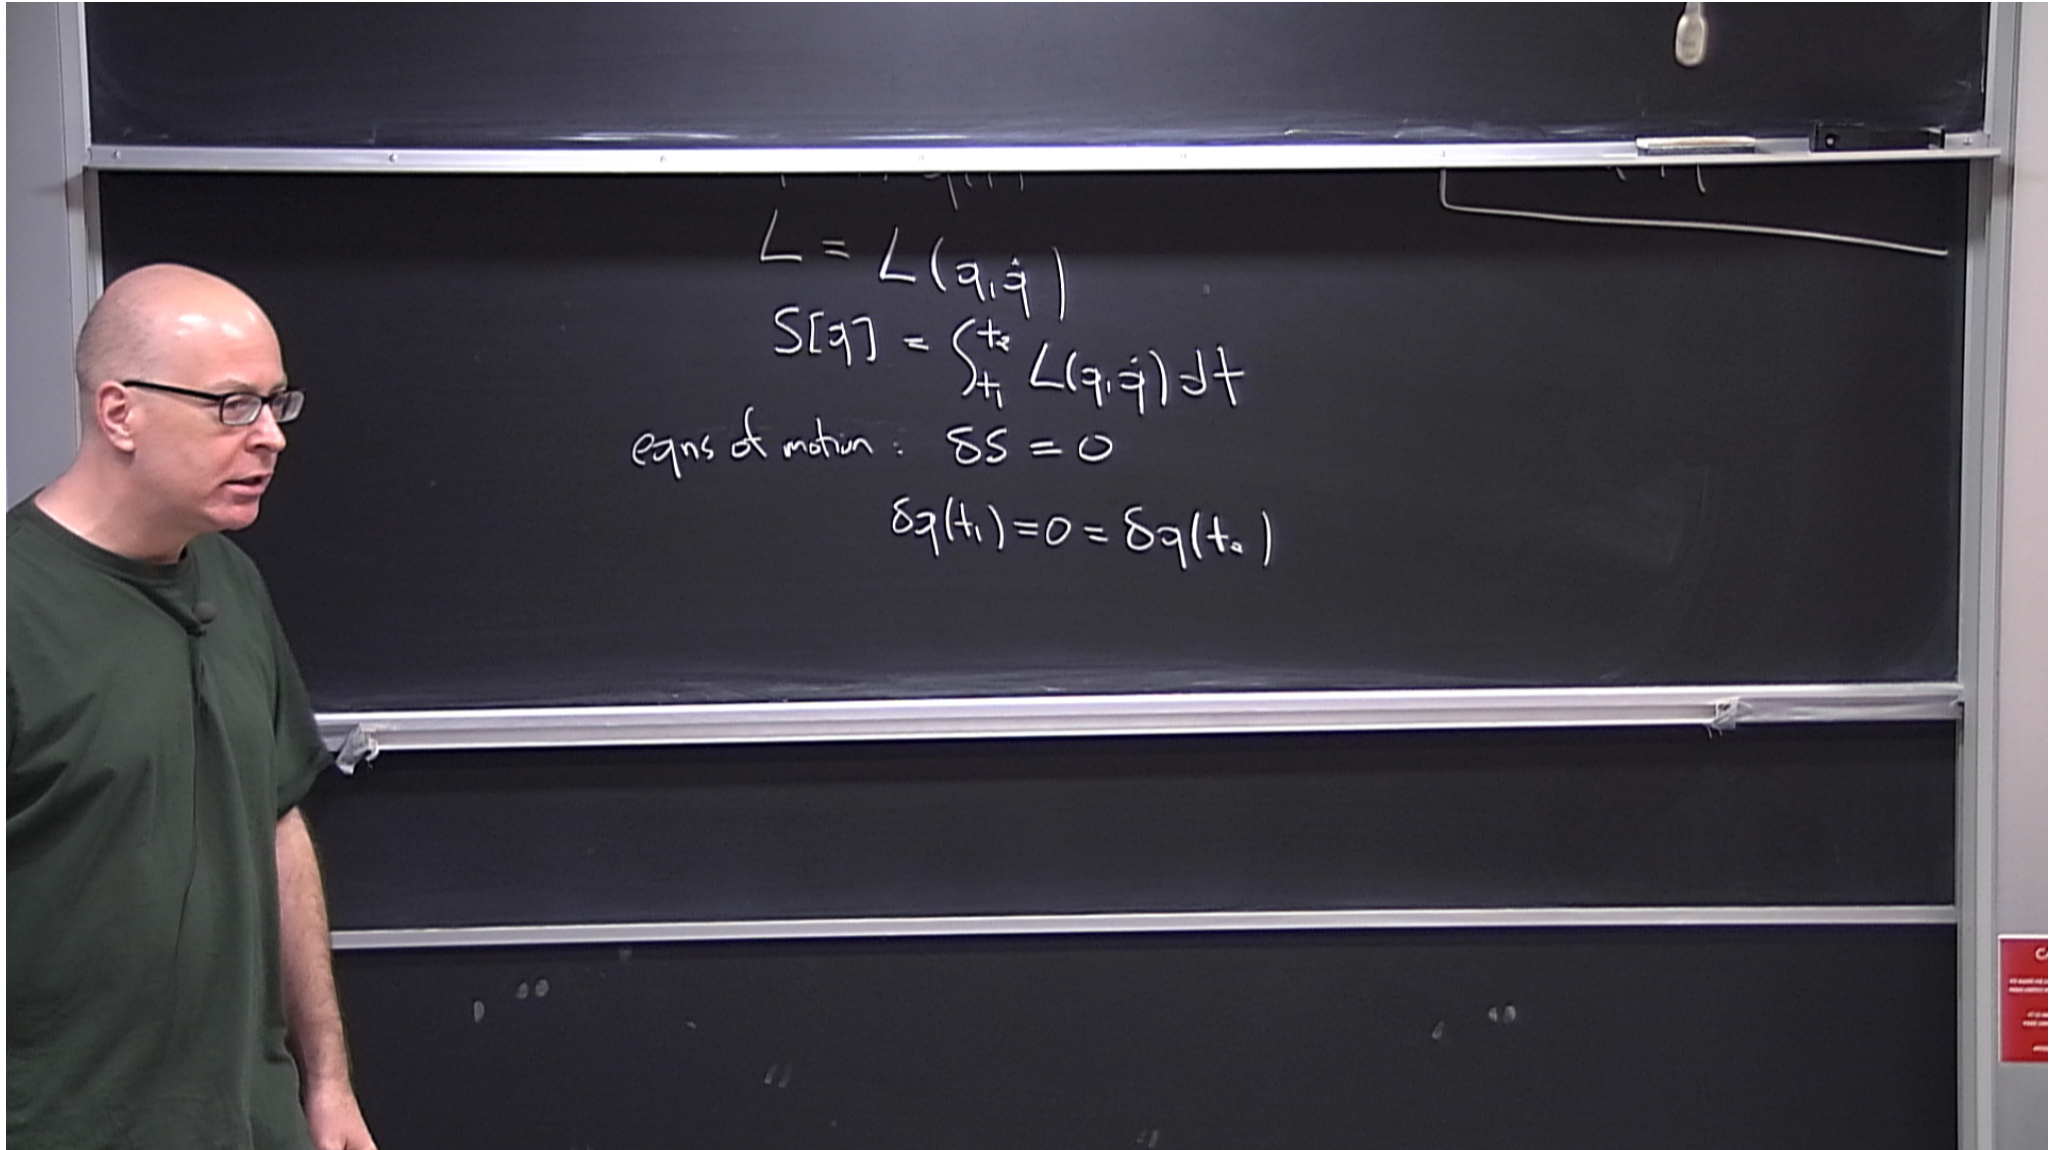 L = L(q, q̇)
S[q] = ∫_{t₁}^{t₂} L(q, q̇) dt
eqns of motion: δS = 0
δq(t₁) = 0 = δq(t₂)